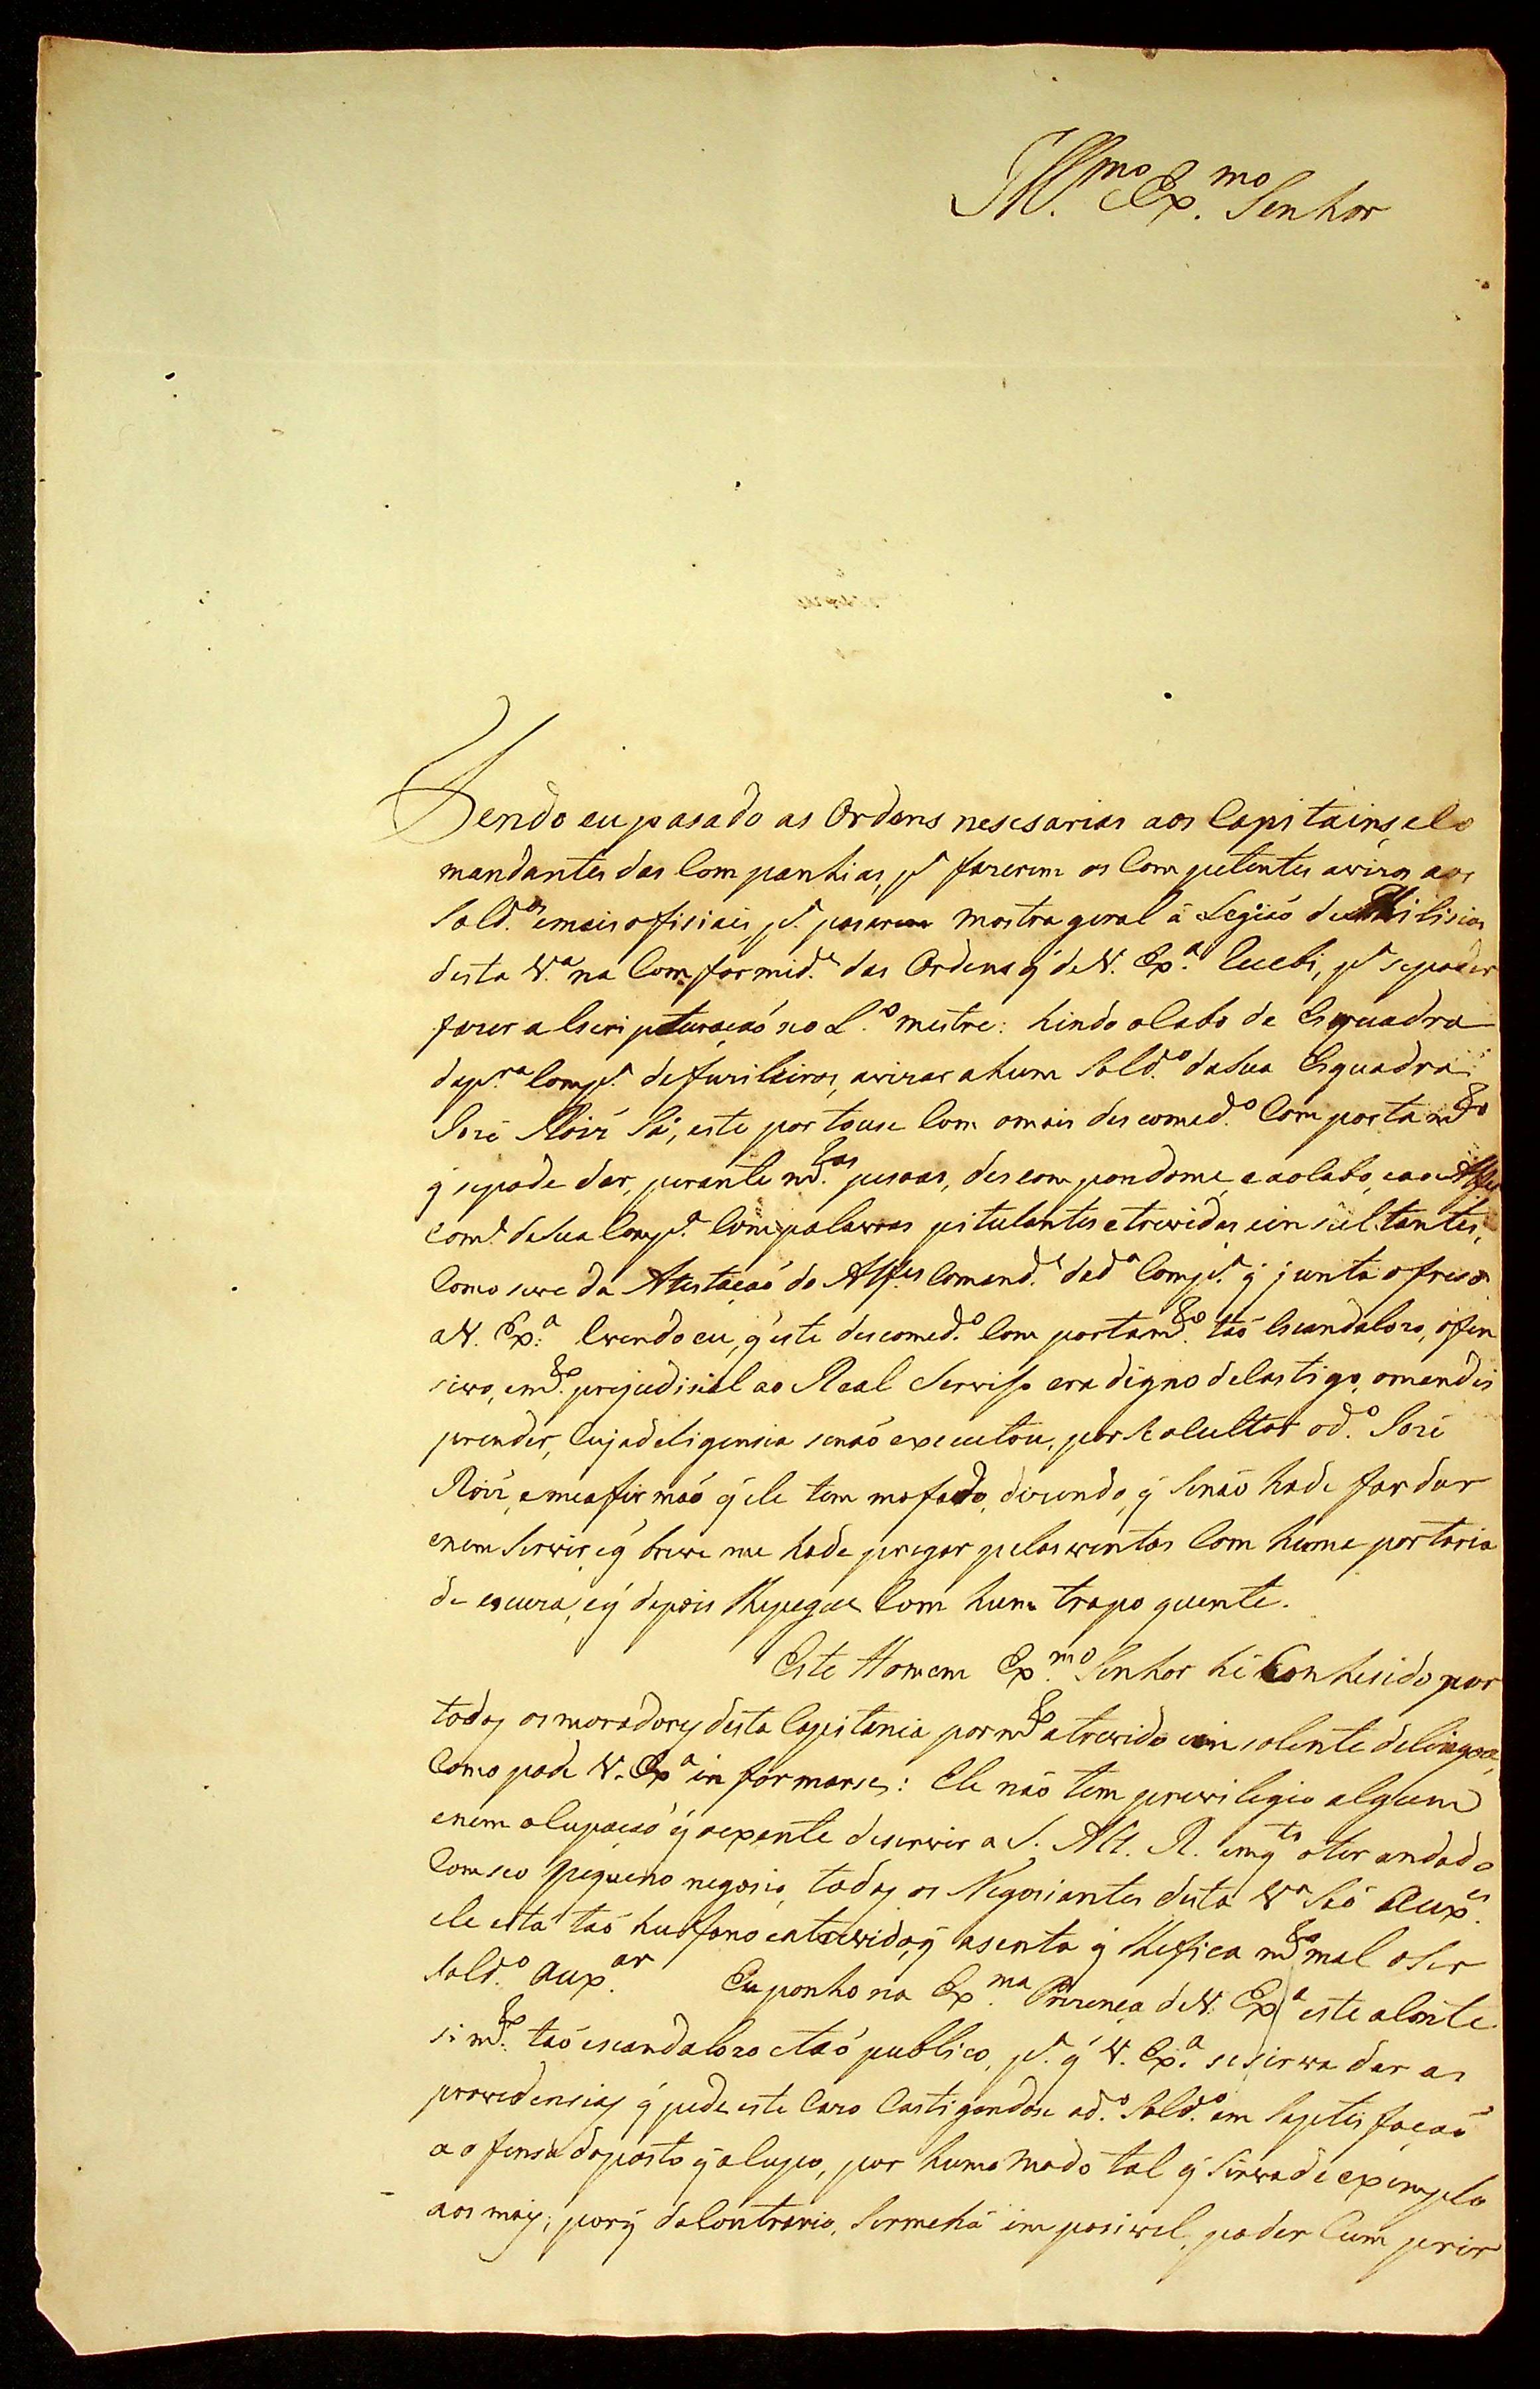 Ill.mo Ex.mo Senhor
Tendo eu pasado as Ordens nesesarias aos Capitains, e Co
mandantes das Companhias, p.a fazerem os Competentes avizos aos
Sold.os e mais offisiais, p.a pasarem mostra geral á Legiaõ de Milisias
desta V.a na Comformid.e das Ordens q̃ de V. Ex.a Recebi, p.a se poder
fazer a Escripturaçaõ no L.o mestre: hindo o Cabo de Esquadra
da p.ra Comp.a de fuzileiros, avizar a hum Sold.o da Sua Esquadra
Joze Roiz Sá, este portouse Com o mais descomed.o Comportam.to
q̃ se pode dar, perante m.tas pesoas, descompondome, e ao Cabo, e ao Alfes
Com.e da Sua Comp.a Com palavras pitulantes atrevidas e insultantes,
Como se ve da Atestaçaõ do Alf.es Comand.e da d.a Comp.a q̃ junta ofreso
a V. Ex.a Crendo eu, q̃ este descomed.o Comportam.to taõ Escandalozo, ofen
sivo, e m.to prejudisial ao Real Servisso era digno de Castigo, o mandei
prender, Cuja deligensia se naõ executou, por Se ocultar o d.o Joze
Roiz, e me afirmaõ q̃ ele tem mofado, dizendo, q̃ Se naõ hade fardar
e nem Servir, e q̃ breve me hade pregar pelas ventas Com huma portaria
de escuza, e q̃ depois lhe pegue Com hum trapo quente.
Este Homem Ex.mo Senhor hé Conhesido por
todos os moradores desta Capitania por m.to atrevido e insolente de lingoa,
Como pode V. Ex.a informarse: Ele naõ tem previlegio algum
e nem ocupaçaõ q̃ o exente de servir a S. Alt. R. emq.to o ter andado
Com seo pequeno negosio, todos os Negosiantes desta V.a Saõ Aux.es
ele esta taõ hufano e atrevido, q̃ asenta q̃ lhe fica m.to mal o Ser
Sold.o Aux.ar Eu ponho na Ex.ma Prezença de V. Ex.a este aconte
sim.to taõ escandalozo e taõ publico, p.a q̃ V. Ex.a se sirva dar as
providensias q̃ pede este Cazo Castigandose ao d.o Sold.o em Saptisfaçaõ
a ofensa do posto q̃ ocupo, por hum modo tal q̃ Sirva de exemplo
aos mais; porq̃ do Contrario, Sermehá imposivel, poder Cumprir